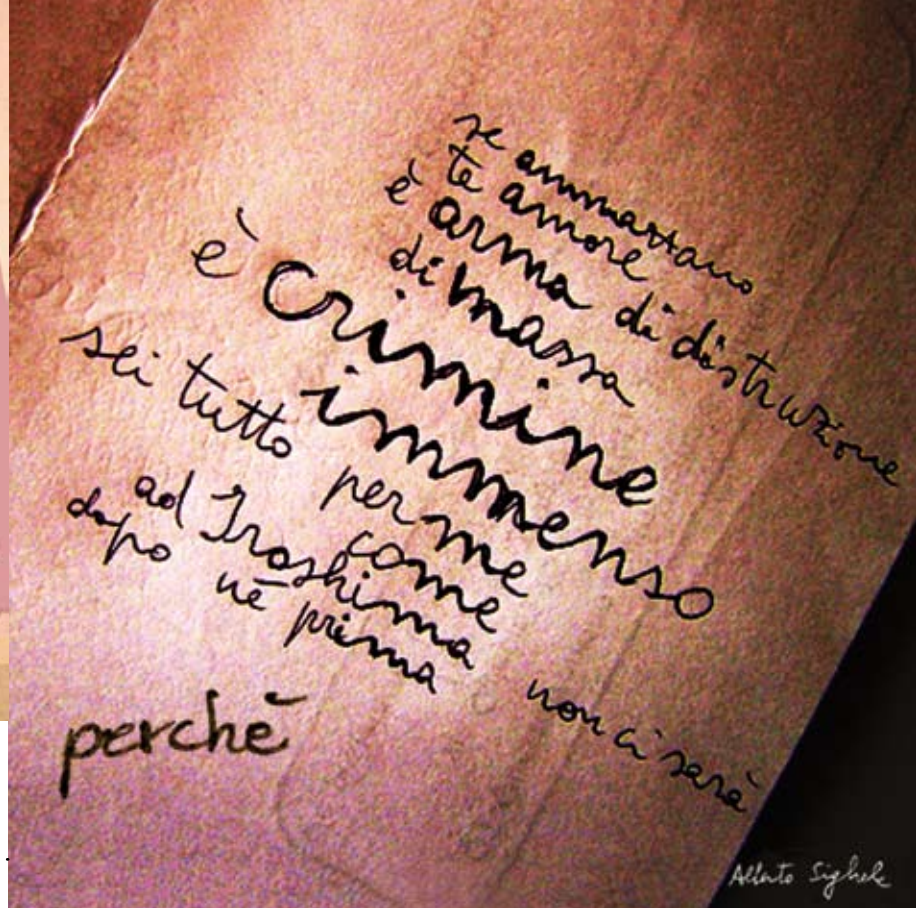 se ammazzano
te amore
è arma di distruzione
di massa
è crimine
immenso
sei tutto per me
come
ad Iroshima
dopo nè prima
non ci sarà
perchè
Alberto Sighele